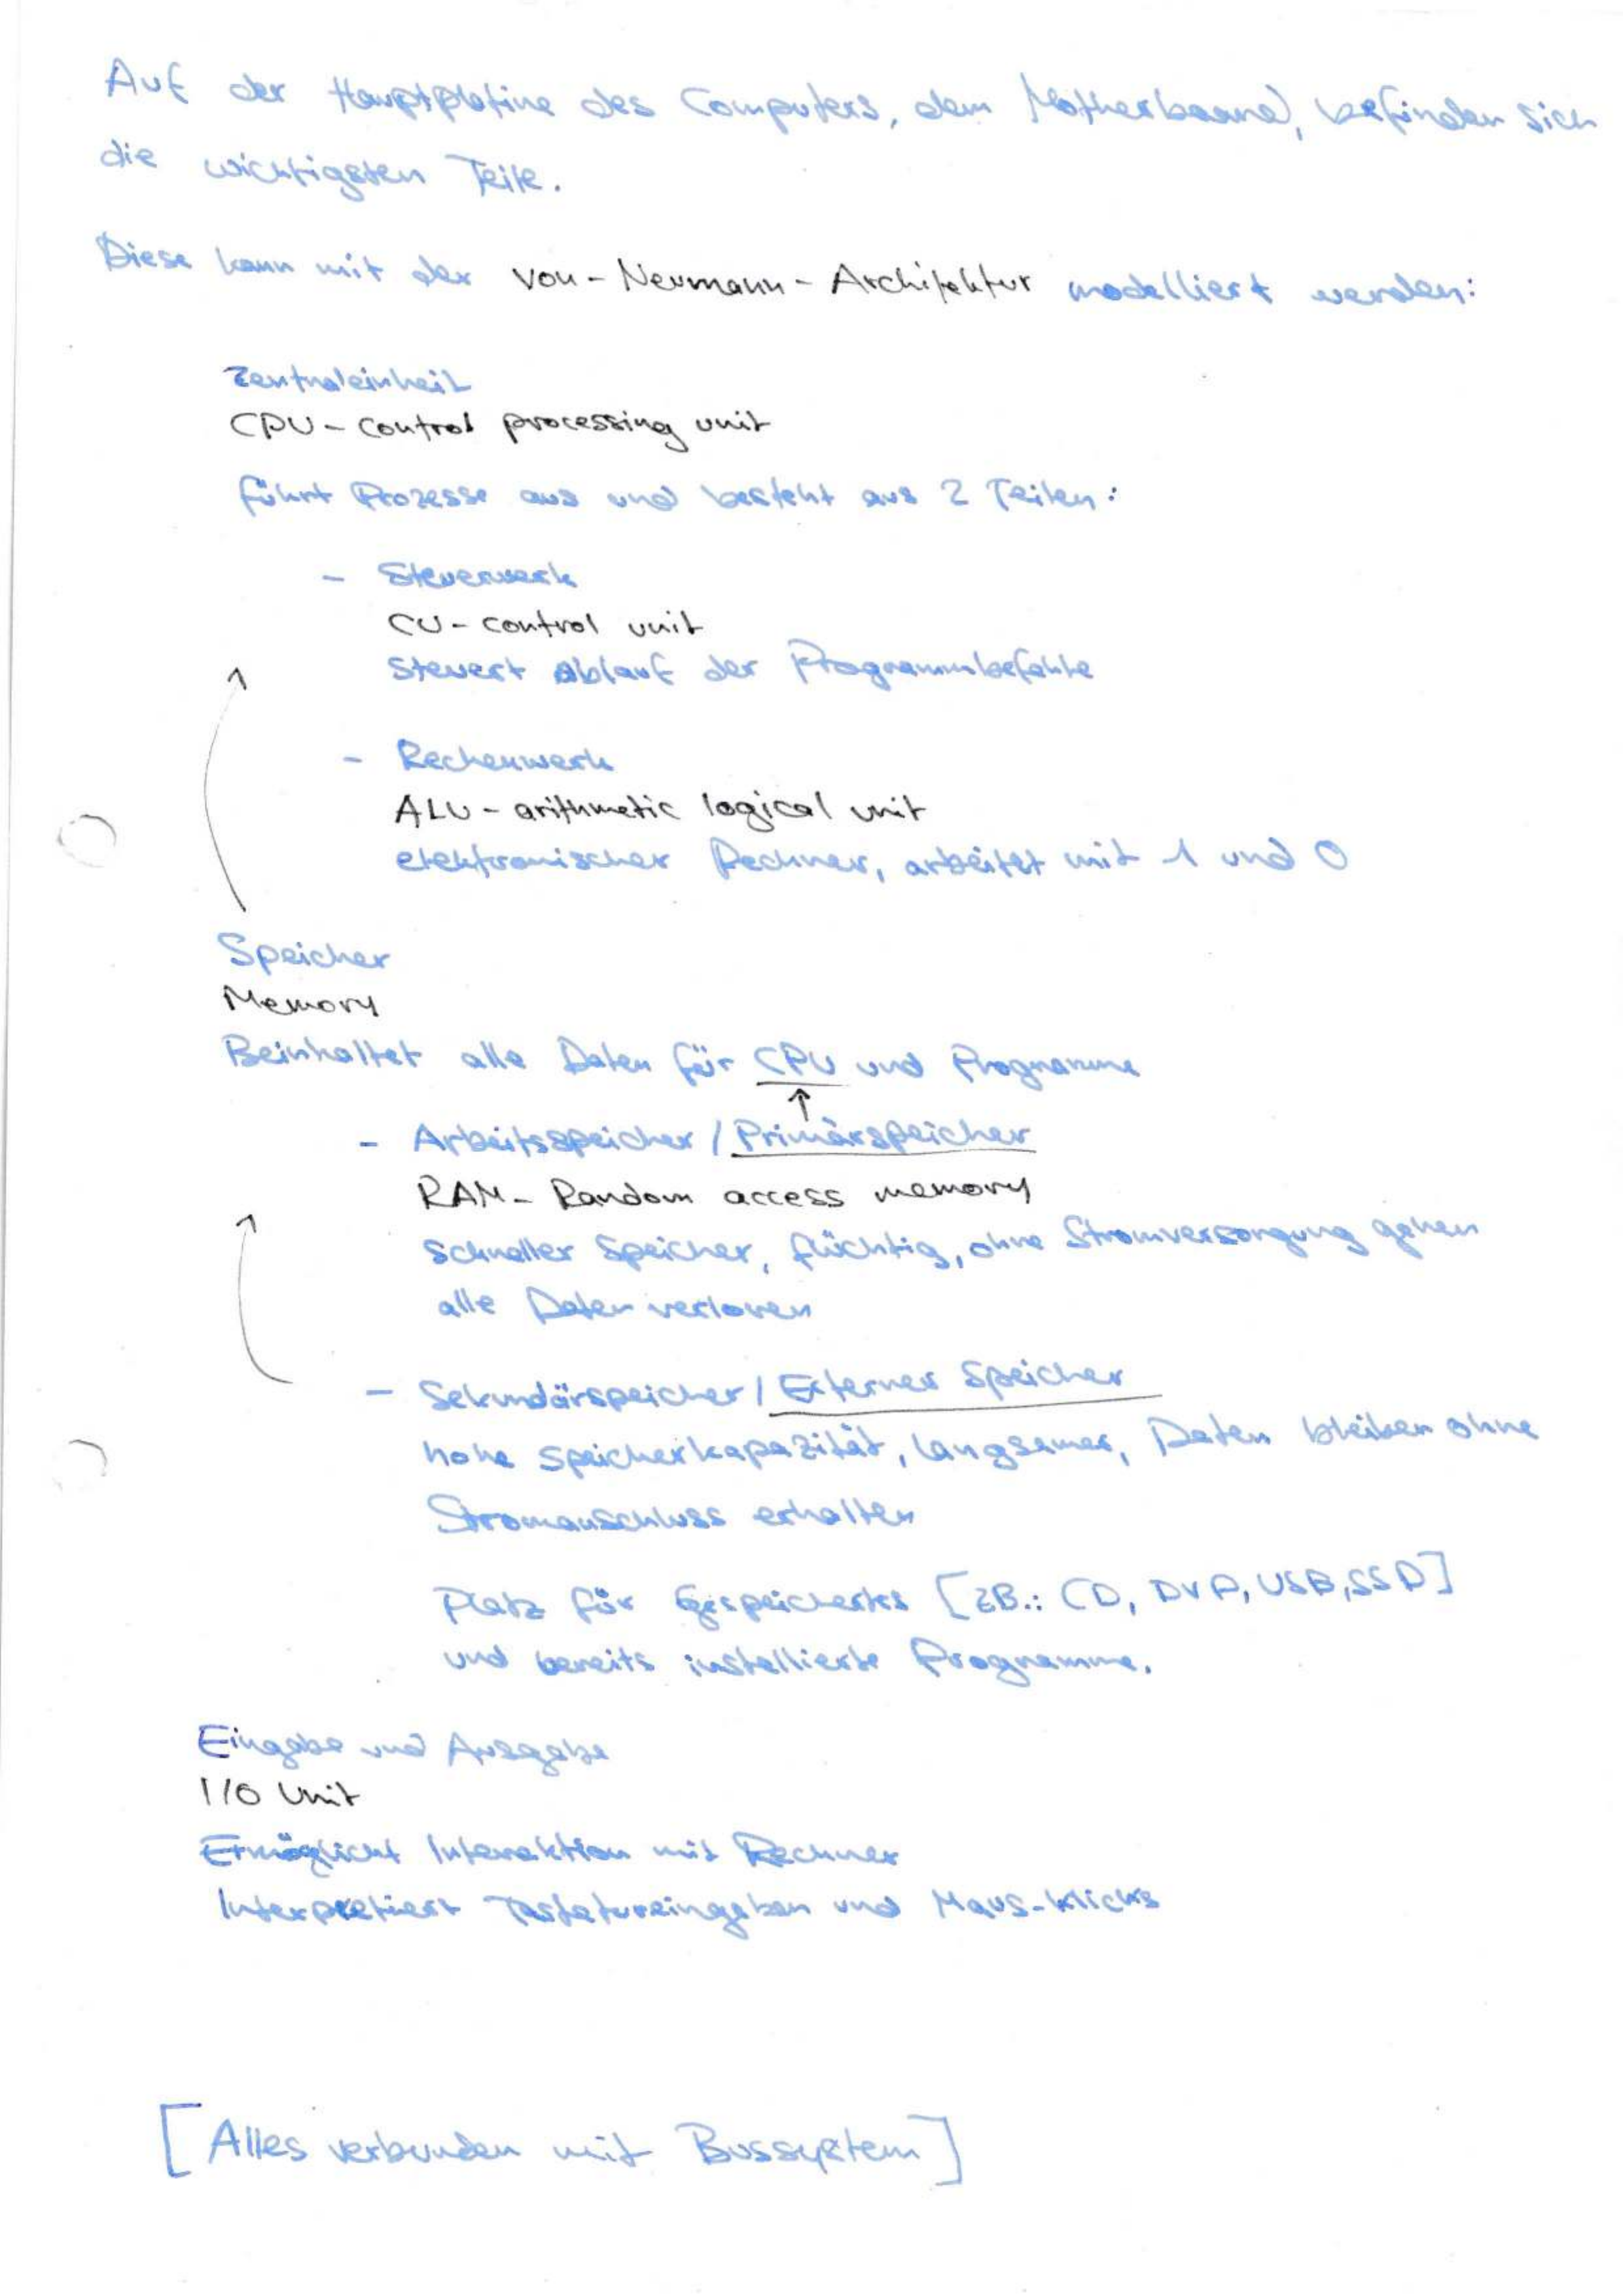 Auf der Hauptplatine des Computers, dem Motherboard, befinden sich
die wichtigsten Teile.
Diese kann mit der von-Neumann-Architektur modelliert werden:
Zentraleinheit
CPU - control processing unit
führt Prozesse aus und besteht aus 2 Teilen:
- Steuerwerk
CU - control unit
Steuert Ablauf der Programmbefehle
- Rechenwerk
ALU - arithmetic logical unit
elektronischer Rechner, arbeitet mit 1 und 0
Speicher
Memory
Beinhaltet alle Daten für CPU und Programme
↑
- Arbeitsspeicher / Primärspeicher
RAM - Random access memory
schneller Speicher, flüchtig, ohne Stromversorgung gehen
alle Daten verloren
- Sekundärspeicher / Externer Speicher
hohe Speicherkapazität, langsamer, Daten bleiben ohne
Stromanschluss erhalten
Platz für Gespeichertes [zB.: CD, DVD, USB, SSD]
und bereits installierte Programme.
Eingabe und Ausgabe
I/O Unit
Ermöglicht Interaktion mit Rechner
Interpretiert Tastatureingaben und Maus-klicks
[Alles verbunden mit Bussystem]